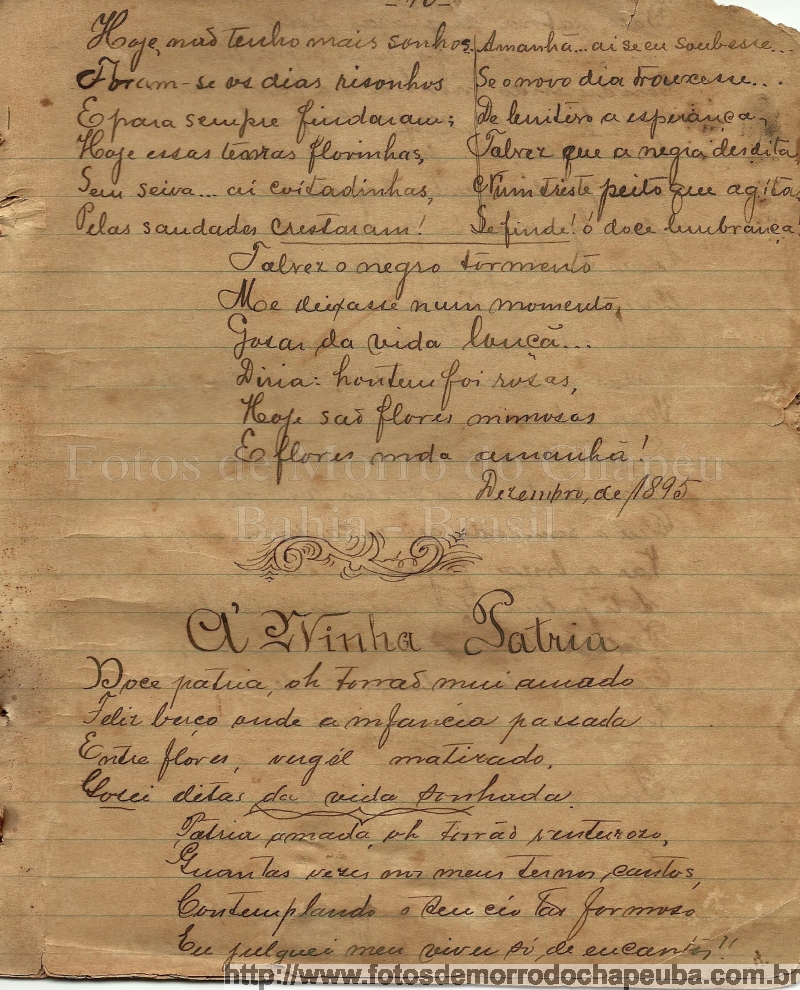 Hoje, não tenho mais sonhos.
Foram-se os dias risonhos
E para sempre findaram;
Hoje essas tenras florinhas,
Sem seiva... ai coitadinhas,
Pelas saudades crestaram!
Amanhã... ai se eu soubesse...
Se o novo dia trouxesse...
De lenitivo a esperança,
Talvez que a negra desdita,
Num triste peito que agita,
Se finde! ó doce lembrança!
Talvez o negro tormento
Me deixasse num momento,
Gosar da vida louçã...
Diria: hontem foi rosas,
Hoje são flores mimosas
E flores inda amanhã!
Dezembro, de 1895
Á Minha Patria
Doce patria, oh torrão mui amado
Feliz berço onde a infancia passada
Entre flôres, vergél matizado,
Gosei ditas da vida sonhada.
Patria amada, oh torrão venturozo,
Quantas vezes nos meus ternos cantos,
Contemplando o teu céo tão formoso
Eu julguei meu viver só, de encantos!!
Fotos de Morro do Chapéu
Bahia - Brasil
http://www.fotosdemorrodochapeuba.com.br